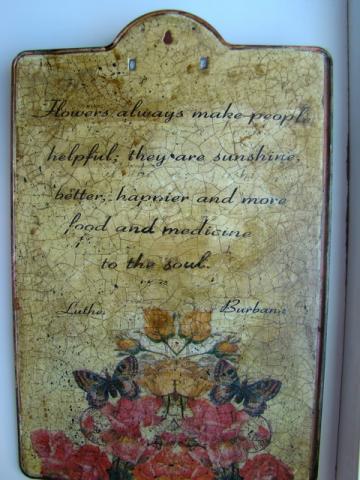 Flowers always make people
helpful; they are sunshine,
better, happier and more
food and medicine
to the soul.
Luther Burbank